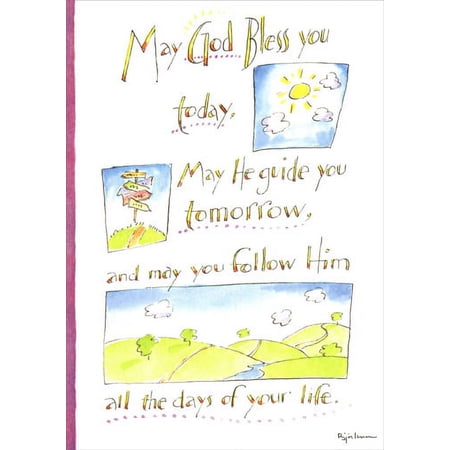 May God Bless you
today.
May He guide you
tomorrow,
and may you follow Him
all the days of your life.